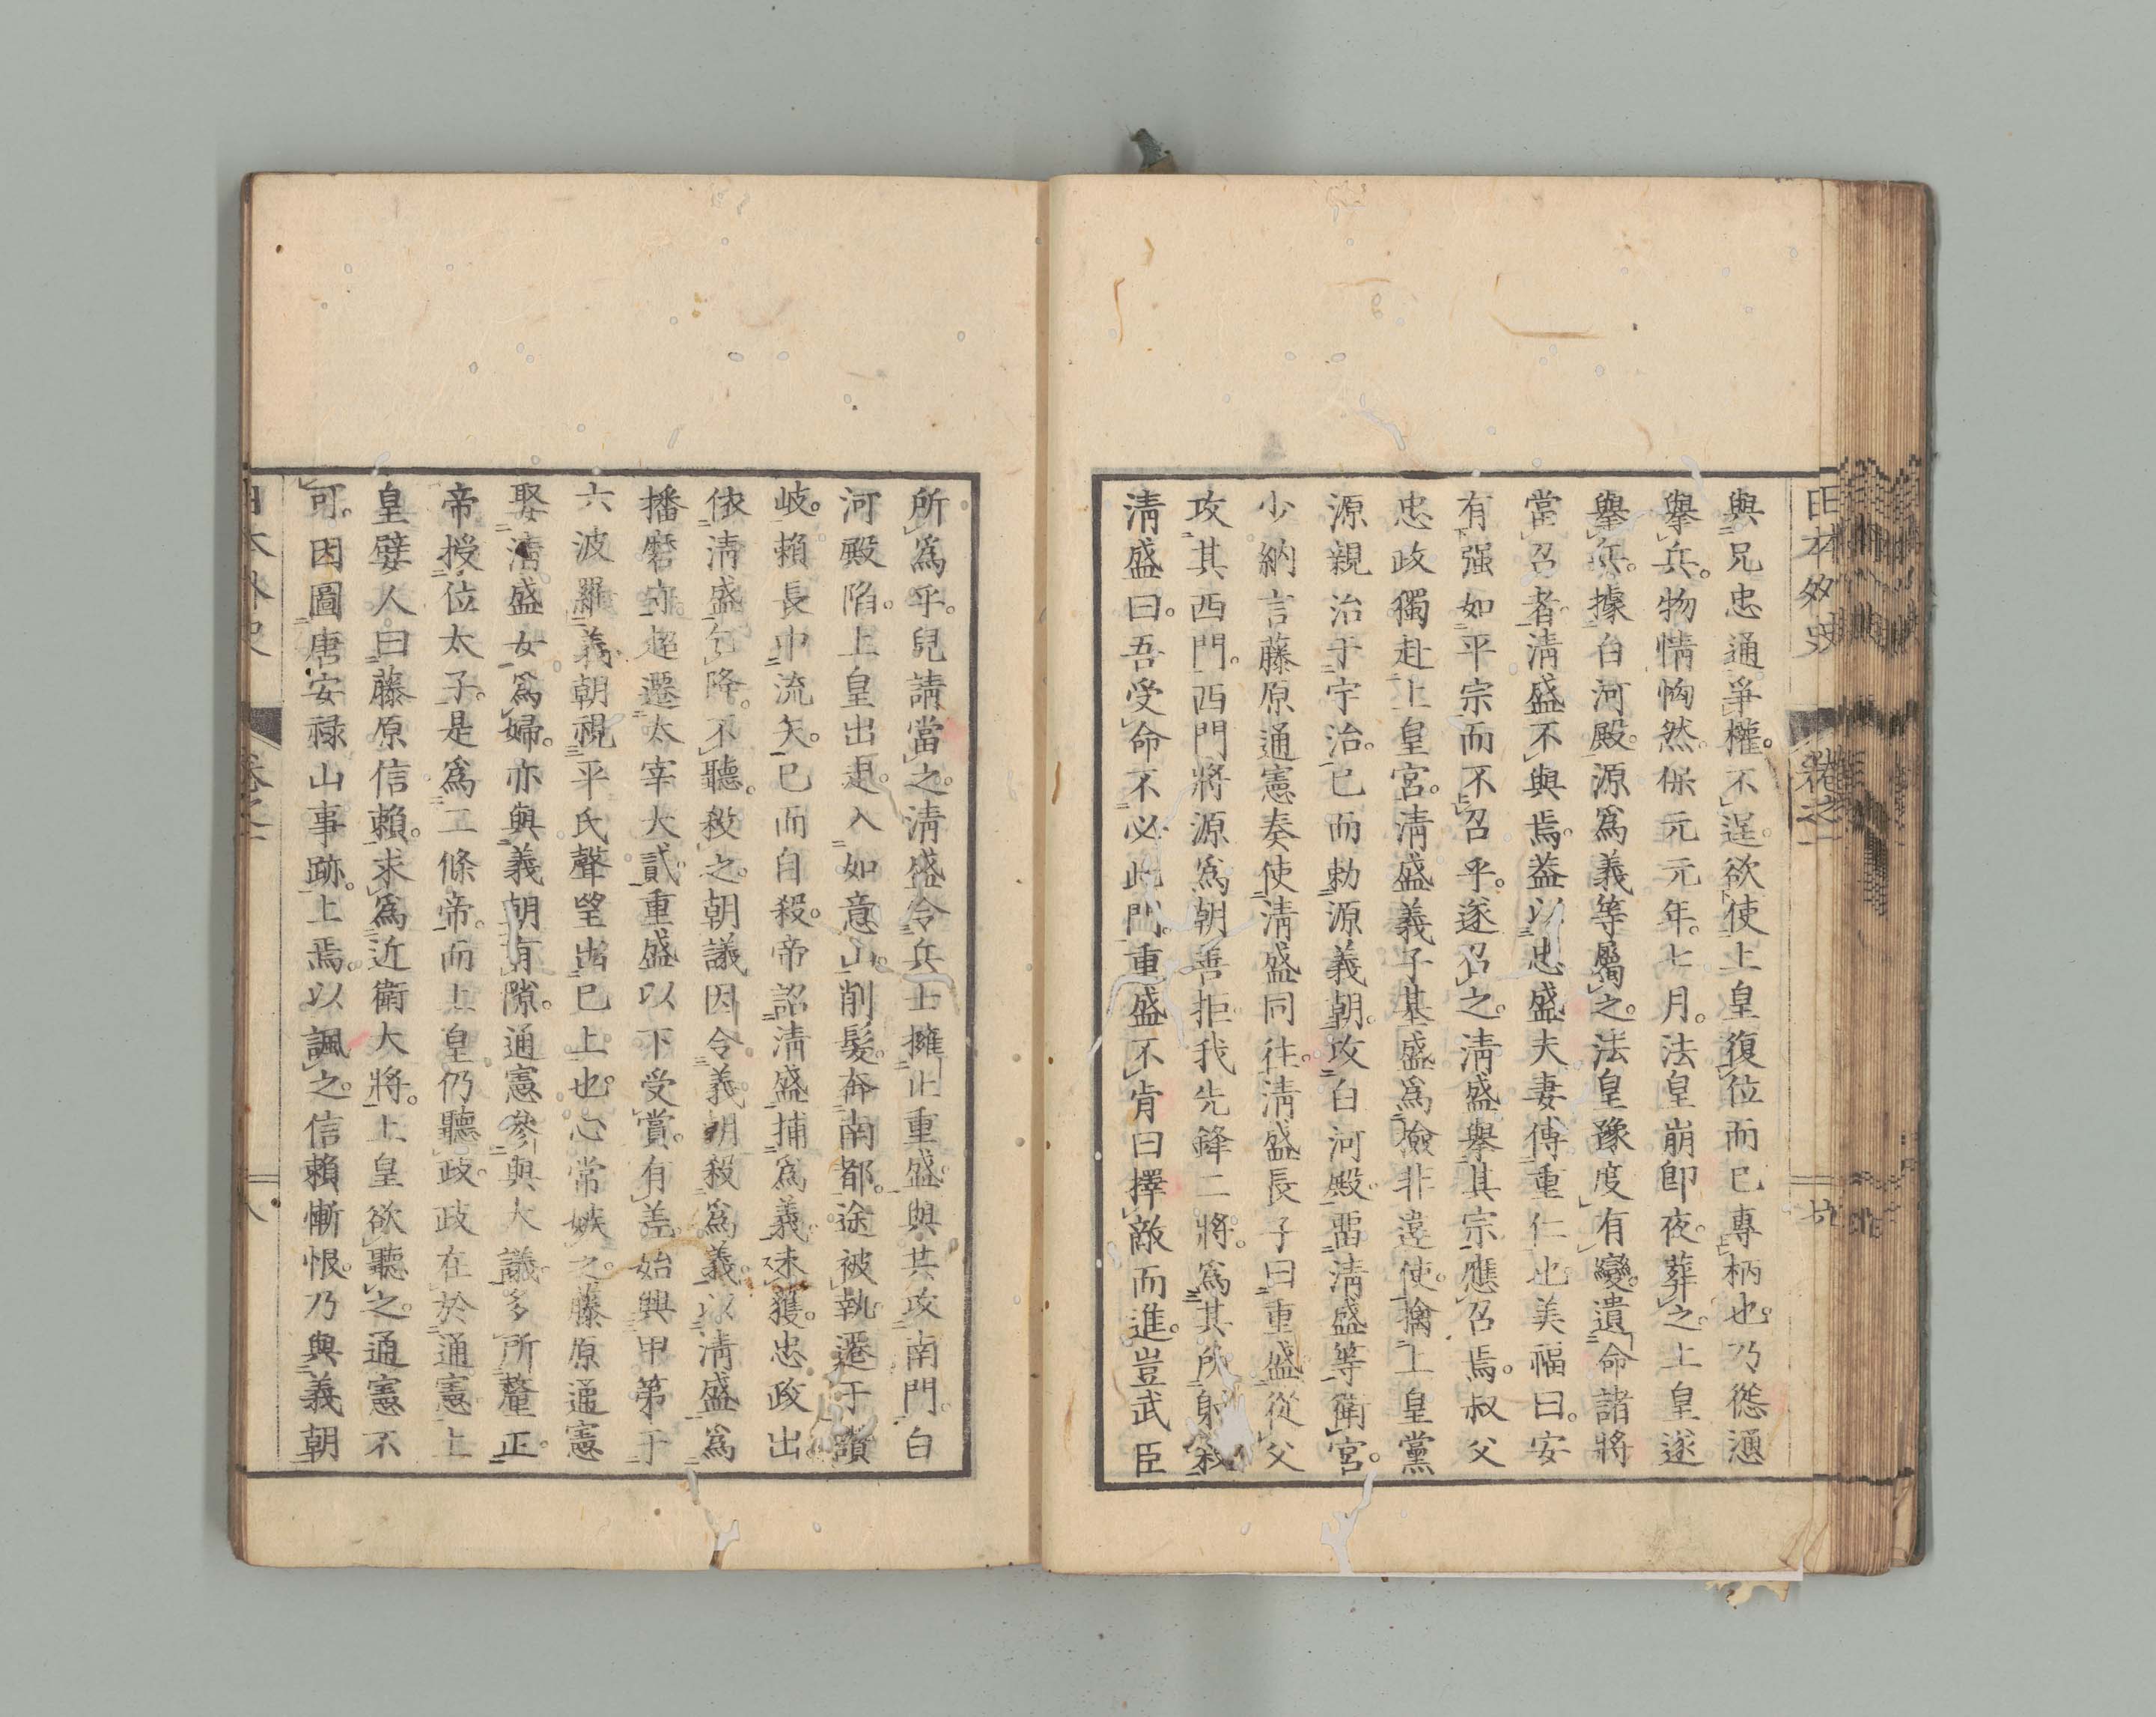 日本外史 卷之一
與兄忠通爭權。不逞。欲使上皇復位而已專柄也。乃慫慂
擧兵。物情恟然。保元元年。七月。法皇崩卽夜。葬之。上皇遂
擧兵。據白河殿。源爲義等屬之。法皇豫度有變。遺命諸將
當召者。淸盛不與焉。蓋以忠盛夫妻傅重仁也。美福曰。安
有强如平宗而不召乎。遂召之。淸盛舉其宗應召焉。叔父
忠政獨赴上皇宮。淸盛義子基盛爲檢非違使。擒上皇黨
源親治于宇治。已而勅源義朝。攻白河殿。留淸盛等衛宮。
少納言藤原通憲奏使淸盛同往。淸盛長子曰重盛。從父
攻其西門。西門將源爲朝善拒我先鋒二將。爲其所射殺
淸盛曰。吾受命不必此門。重盛不肯曰擇敵而進。豈武臣
所爲乎。兒請當之。淸盛令兵士擁止重盛。與共攻南門。白
河殿陷。上皇出走。入如意山。削髮。奔南都。途被執。遷于讚
岐。賴長中流矢。已而自殺。帝詔淸盛捕爲義。未獲。忠政出
依淸盛乞降。不聽。殺之。朝議因令義朝殺爲義。以淸盛爲
播磨守。超遷太宰大貳。重盛以下受賞。有差。始興甲第于
六波羅。義朝視平氏聲望出已上也。心常嫉之。藤原通憲
娶淸盛女爲婦。亦與義朝有隙。通憲參與大議。多所釐正。
帝授位太子。是爲二條帝。而上皇仍聽政。政在於通憲。上
皇嬖人曰藤原信賴。求爲近衛大將。上皇欲聽之。通憲不
可。因圖唐安祿山事跡。上焉。以諷之。信賴慚恨。乃與義朝
日本外史 卷之一